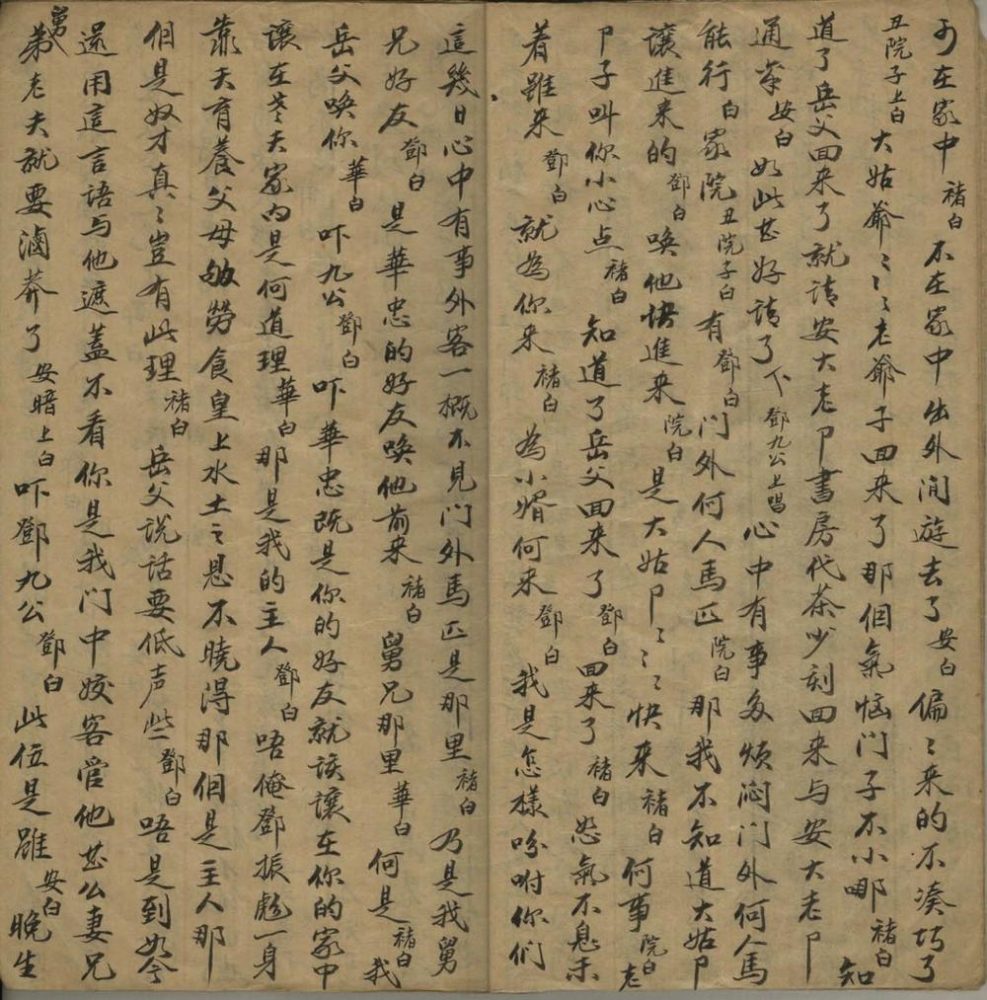 可在家中褚白不在家中出外闲遊去了安白偏〻来的不凑巧了
丑院子上白大姑爺〻〻老爺子回来了那個氣恼门子不小哪褚白知
道了岳父回来了就请安大老卩書房代茶少刻回来与安大老卩
通崇安白如此甚好请了下鄧九公上唱心中有事多烦闷门外何人馬
能行白家院丑院子白有鄧白门外何人馬匹院白那我不知道大姑卩
讓進来的鄧白唤他快進来院白是大姑卩〻〻快来褚白何事院白老
卩子叫你小心点褚白知道了岳父回来了鄧白回来了褚白怒氣不息未
着雖来鄧白就為你来褚白為小婿何来鄧白我是怎樣吩咐你们
這幾日心中有事外客一概不見门外馬匹是那里褚白乃是我舅
兄好友鄧白是華忠的好友唤他前来褚白舅兄那里華白何是褚白我
岳父唤你華白吓九公鄧白吓華忠既是你的好友就该讓在你的家中
讓在老夫家内是何道理華白那是我的主人鄧白唔俺鄧振彪一身
靠天育養父母劬勞食皇上水土之恩不曉得那個是主人那
個是奴才真〻豈有此理褚白岳父说话要低声些鄧白唔是到如今
還用這言語与他遮蓋不看你是我门中姣客管他甚么妻兄
舅弟老夫就要滷莽了安暗上白吓鄧九公鄧白此位是雖安白晚生